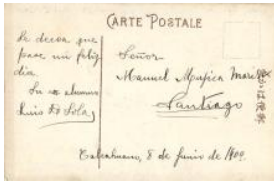 CARTE POSTALE
Le desea que
pase un feliz
dia.
Su ex alumno
Luis A. Sola
Señor
Manuel Mujica
Santiago
Talcahuano, 8 de Junio de 1909.